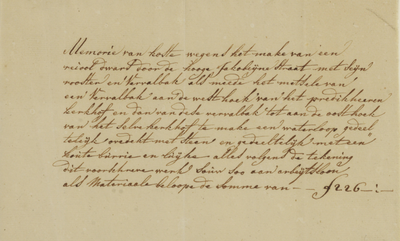 Memorie van koste wegens het make van een
riool dwars door de hooge Jakobijne Straat met Sijn
roosten en Vervalbak als meede het metsele van
een Vervalbak aan de westhoek van het predikheeren
kerkhof en dan van dese vervalbak tot aan de oosthoek
van het selve kerkhof te make een waterloop gedeel
telijk gedekt met Steen en gedeeltelijk met een
houte en alles volgens de tekening
dit voorschreve werk Souw Soo aan arbijtsloon
als Materiaale beloope de Somma van — ƒ226 —:—